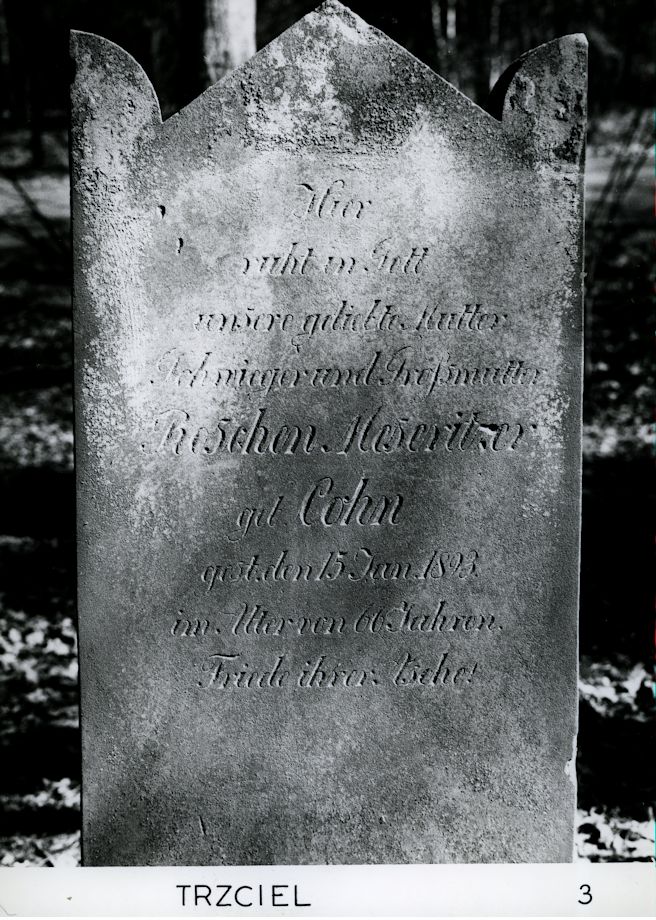 Hier
ruht in Gott
unsere geliebte Mutter
Schwieger und Großmutter
Reschen Meseritzer
geb. Cohn
gest. den 15 Jan. 1893.
im Alter von 66 Jahren.
Friede ihrer Asche!
TRZCIEL 3